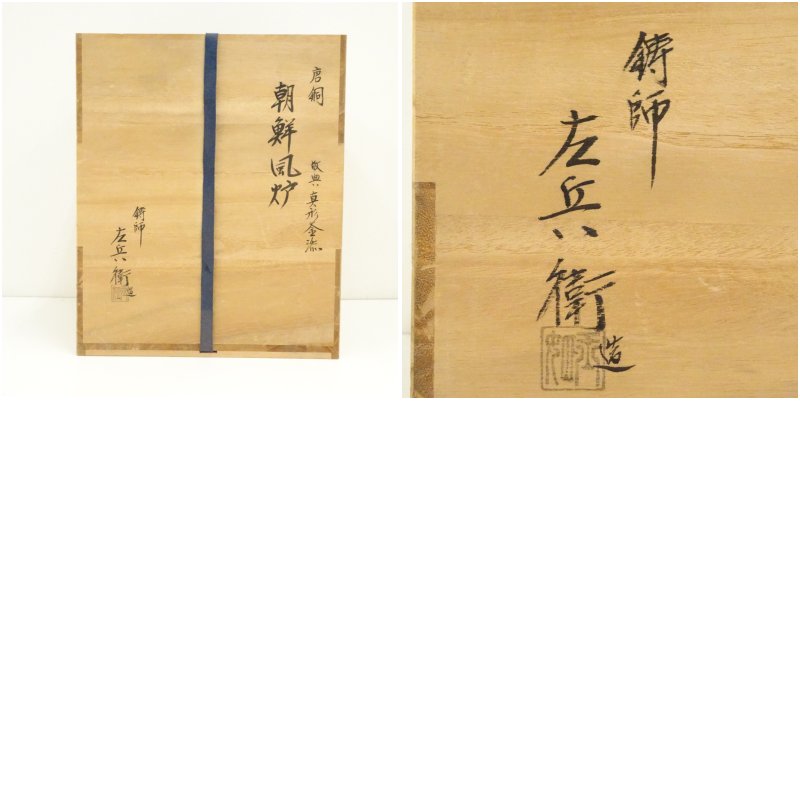 唐銅
朝鮮風炉
真形釜添
鋳師
左兵衛
造
鋳師
左兵衛
造